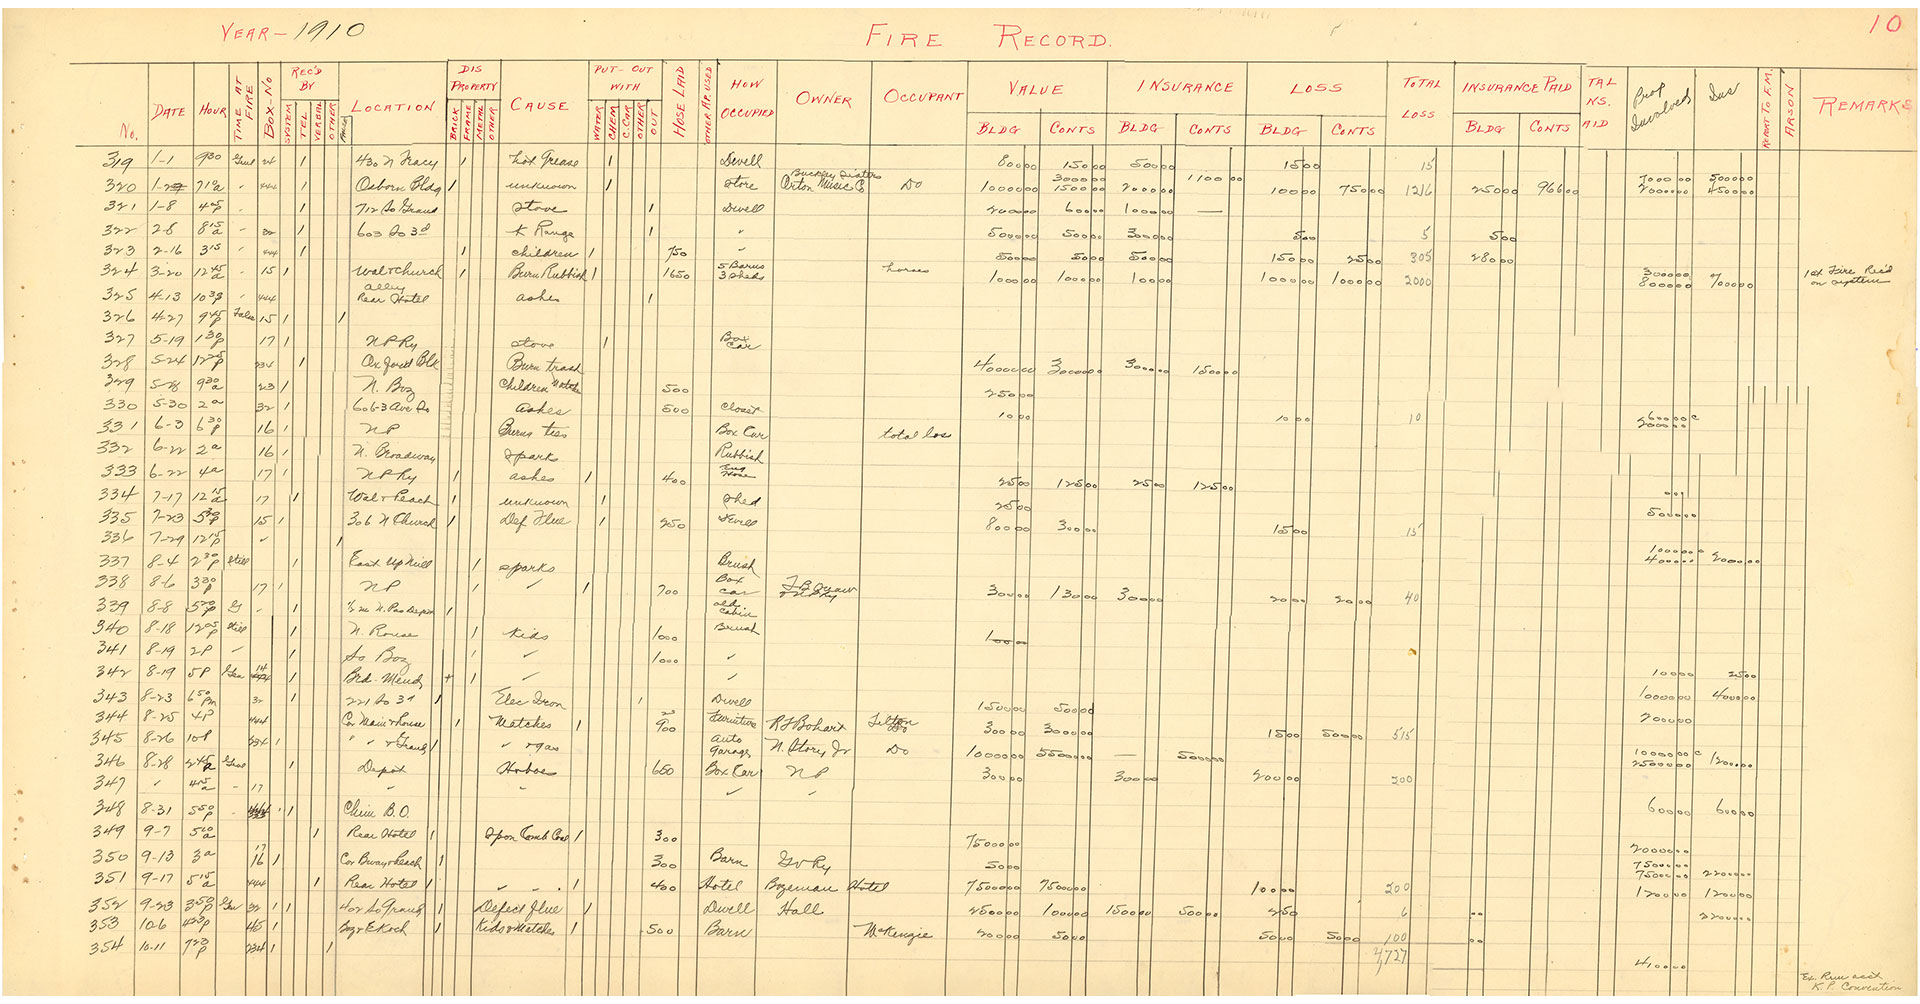 YEAR - 1910 FIRE RECORD. 10
No. DATE HOUR TIME AT FIRE BOX-No REC'D BY SYSTEM TEL VERBAL OTHER FALSE LOCATION DIS PROPERTY BRICK FRAME METAL OTHER CAUSE PUT-OUT WITH WATER CHEM C.CAR OTHER OUT HOSE LAID OTHER AP. USED HOW OCCUPIED OWNER OCCUPANT VALUE BLDG CONTS INSURANCE BLDG CONTS LOSS BLDG CONTS TOTAL LOSS INSURANCE PAID BLDG CONTS TAL NS. AID Prop Involved Ins REPORT TO F.M. ARSON REMARKS
319 1-1 9 30 24 1 430 N Tracy 1 hot Grease 1 Dwell 800 00 150 00 500 00 15 00 15
320 71 0 a 444 1 Osborn Bldg 1 unknown 1 Store Buckley Sisters Orton Music C Do 10000 00 3000 00 1500 00 2000 00 1100 00 1000 00 750 00 1216 250 00 966 00
321 1-8 4 05 p 1 712 So Grand stove 1 Dwell 2000 00 600 00 1000 00 —
322 2-8 8 15 a 32 1 603 So 3d K Range 1 " 5000 00 500 00 3000 00 5 00 5 5 00
323 2-16 3 15 444 1 1 children 1 750 " 500 00 50 00 500 00 150 00 25 00 305 280 00
324 3-20 12 45 a 15 1 Wal & Church alley 1 Burn Rubbish 1 1650 5 Barns 3 sheds horses 1000 00 1000 00 100 00 1000 00 1000 00 2000 1st Fire Rec'd on system
325 4-13 10 30 444 Rear Hotel ashes 1
326 4-27 9 45 p False 15 1 1
327 5-19 1 30 p 17 1 NP Ry stove 1 Box Car
328 5-24 12 25 p 234 1 Blk Burn trash 40000 00 30000 00 3000 00 1500 00
329 5-28 9 30 a 23 1 N. Boz Children Matches 500 250 00
330 5-30 2 a 32 1 606-3 Ave So Ashes 500 closet 10 00 10 00 10
331 6-3 6 30 p 16 1 NP Burns ties Box Car total loss
332 6-22 2 a 16 1 N. Broadway sparks Rubbish
333 6-22 4 a 17 1 NP Ry 1 ashes 1 400 Eng House 25 00 125 00 25 00 125 00
334 7-17 12 15 a 17 1 Wal & Peach 1 unknown 1 Shed 25 00
335 7-23 5 30 p 15 1 306 N Church 1 Def Flue 1 250 Dwell 800 00 300 00 15 00 15
336 7-29 12 15 p ✓ 1
337 8-4 2 30 p Still 1 East Up hill 1 sparks Brush
338 8-6 3 30 p 17 1 NP 1 " 1 700 Box car 300 00 1300 00 300 00 20 00 20 00 40
339 8-8 5 20 p G 1 ½ m N. Pac Depot 1 old cabin
340 8-18 12 05 p Still 1 N. Rouse 1 Kids 1000 Brush 100 00
341 8-19 2 P ✓ 1 So Boz 1 ✓ 1000 ✓
342 8-19 5 P Gen 14 1 + 1 ✓ ✓
343 8-23 6 50 pm 32 1 221 So 3d 1 Elec Iron 1 Dwell 1500 00 500 00
344 8-25 4 P 444 Cor Main & Rouse 1 Matches 1 900 Furniture R F Bohart Tilton Do 3000 00 3000 00 15 00 500 00 515
345 8-26 10 P 234 1 " " & Grand 1 " & gas Auto Garage N. Story Jr Do 10000 00 5500 00 — 5000 00
346 8-28 2 45 a Gen 1 Depot Hoboes 650 Box Car NP 300 00 300 00 200 00 200
347 " 4 15 a 17 " " ✓ ✓
348 8-31 5 50 p 1 Chim B.O.
349 9-7 5 10 a 1 Rear Hotel 1 Spon Comb Coal 1 300 75000 00
350 9-13 3 a 17 16 1 Cor Bway & Peach 1 300 Barn G v Ry 50 00
351 9-17 5 15 a 444 1 Rear Hotel 1 ✓ ✓ . 1 400 Hotel Bozeman Hotel 75000 00 7500 00 100 00 200
352 9-23 3 50 p Gen 32 1 1 402 So Grand 1 Defect flue 1 Dwell Hall 2500 00 1000 00 1500 00 500 00 2 50 6
353 10-6 4 23 p 45 1 Boz & E Koch 1 Kids & Matches 1 500 Barn McKenzie 200 00 50 00 50 00 50 00 100
354 10-11 7 23 p 234 1 1 4727
Ex. Run acct
K. P. Convention